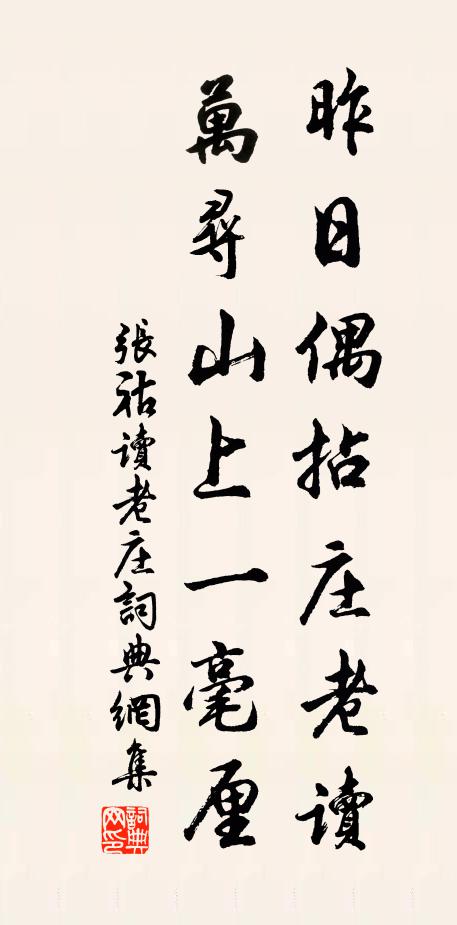 昨日偶拈庄老讀
萬尋山上一毫厘
張祜讀老庄詞典網集
詞典網印